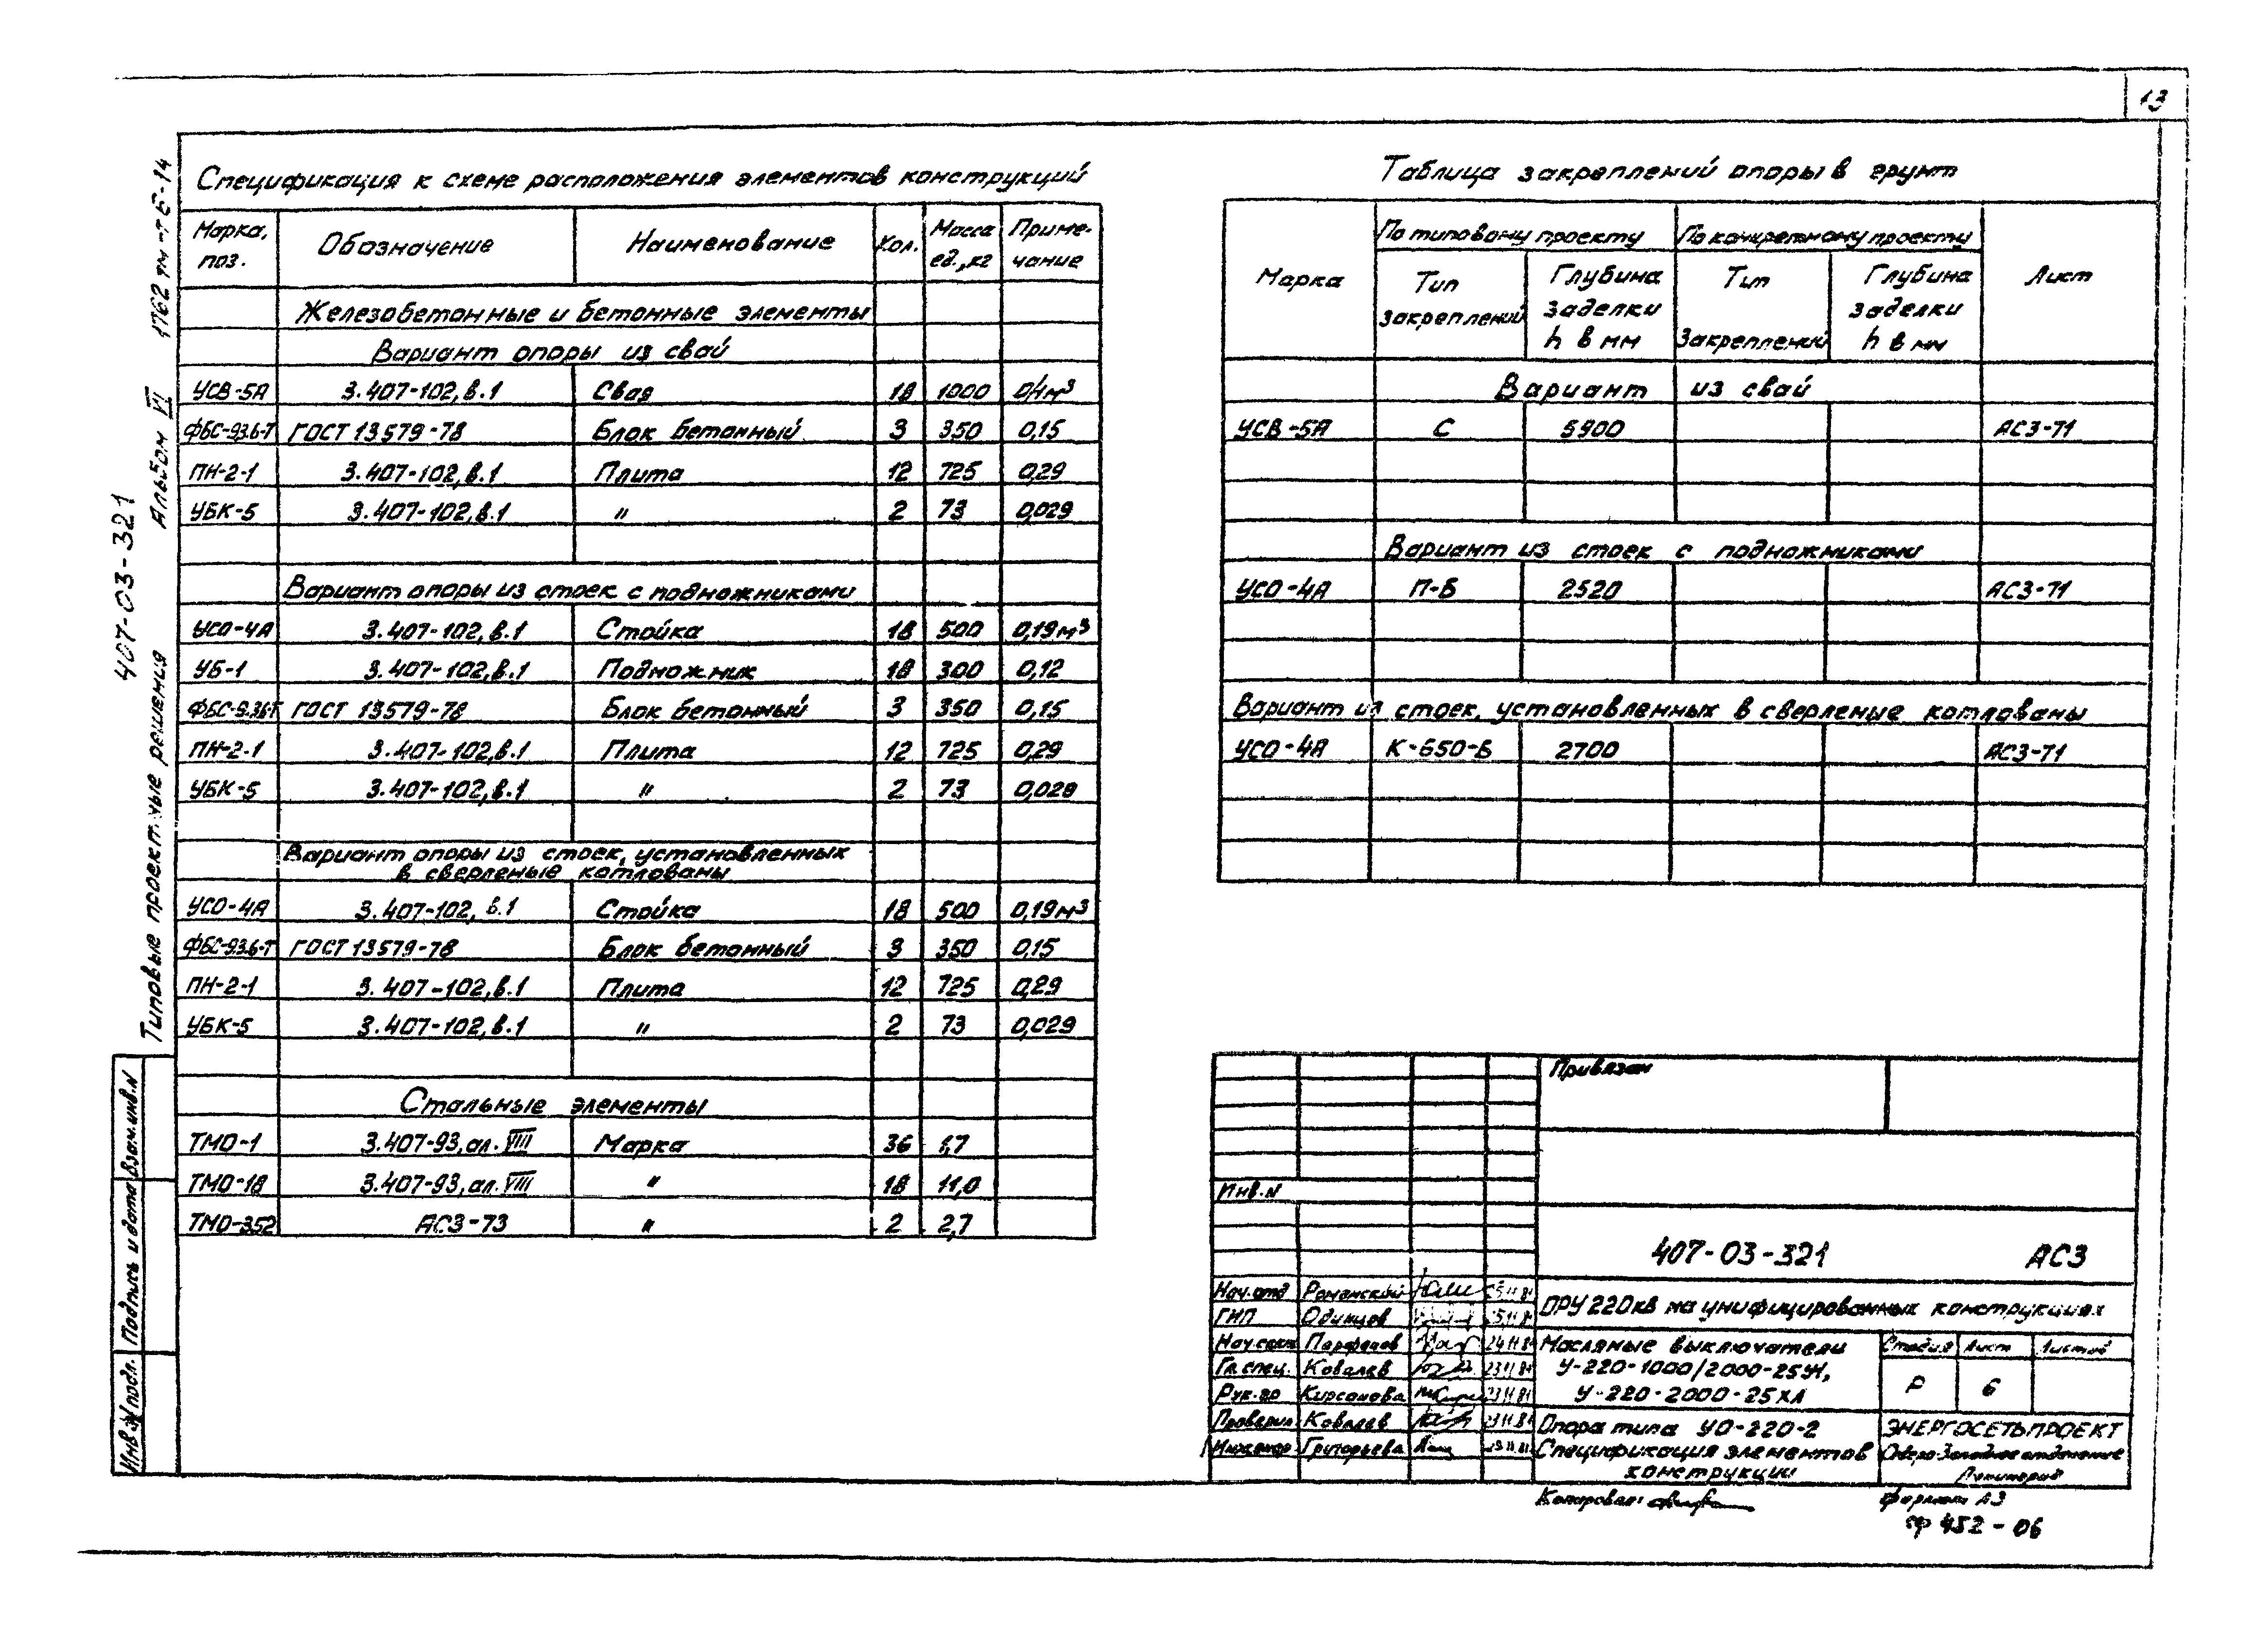 13
Спецификация к схеме расположения элементов конструкций
Марка, поз. Обозначение Наименование Кол. Масса ед., кг Примечание
Железобетонные и бетонные элементы
Вариант опоры из свай
УСВ-5А 3.407-102, в.1 Свая 18 1000 0,4м³
ФБС-9.3.6-Т ГОСТ 13579-78 Блок бетонный 3 350 0,15
ПН-2-1 3.407-102, в.1 Плита 12 725 0,29
УБК-5 3.407-102, в.1 " 2 73 0,029
Вариант опоры из стоек с подножниками
УСО-4А 3.407-102, в.1 Стойка 18 500 0,19м³
УБ-1 3.407-102, в.1 Подножник 18 300 0,12
ФБС-9.3.6-Т ГОСТ 13579-78 Блок бетонный 3 350 0,15
ПН-2-1 3.407-102, в.1 Плита 12 725 0,29
УБК-5 3.407-102, в.1 " 2 73 0,029
Вариант опоры из стоек, установленных
в сверленые котлованы
УСО-4А 3.407-102, в.1 Стойка 18 500 0,19м³
ФБС-9.3.6-Т ГОСТ 13579-78 Блок бетонный 3 350 0,15
ПН-2-1 3.407-102, в.1 Плита 12 725 0,29
УБК-5 3.407-102, в.1 " 2 73 0,029
Стальные элементы
ТМО-1 3.407-93, ал. VIII Марка 36 1,7
ТМО-18 3.407-93, ал. VIII " 18 11,0
ТМО-352 АС3-73 " 2 2,7
Таблица закреплений опоры в грунт
Марка По типовому проекту По конкретному проекту Лист
Тип закреплений Глубина заделки h в мм Тип Закреплений Глубина заделки h в мм
Вариант из свай
УСВ-5А С 5900 АС3-71
Вариант из стоек с подножниками
УСО-4А П-Б 2520 АС3-71
Вариант из стоек, установленных в сверленые котлованы
УСО-4А К-650-Б 2700 АС3-71
Привязан
Инв.N
407-03-321 АС3
Нач.отд Романский
ГИП Одинцов
Нач.сект Парфенов
Гл.спец. Ковалев
Рук.гр Кирсанова
Проверил Ковалев
Инженер Григорьева
ОРУ 220кВ на унифицированных конструкциях
Масляные выключатели
У-220-1000/2000-25У1,
У-220-2000-25ХЛ
Стадия Лист Листов
Р 6
Опора типа УО-220-2
Спецификация элементов
конструкции
ЭНЕРГОСЕТЬПРОЕКТ
Северо-Западное отделение
Ленинград
Копировал:
Формат А3
452-06
407-03-321
Типовые проектные решения Альбом VI
Инв.N подл. Подпись и дата Взам.инв.N